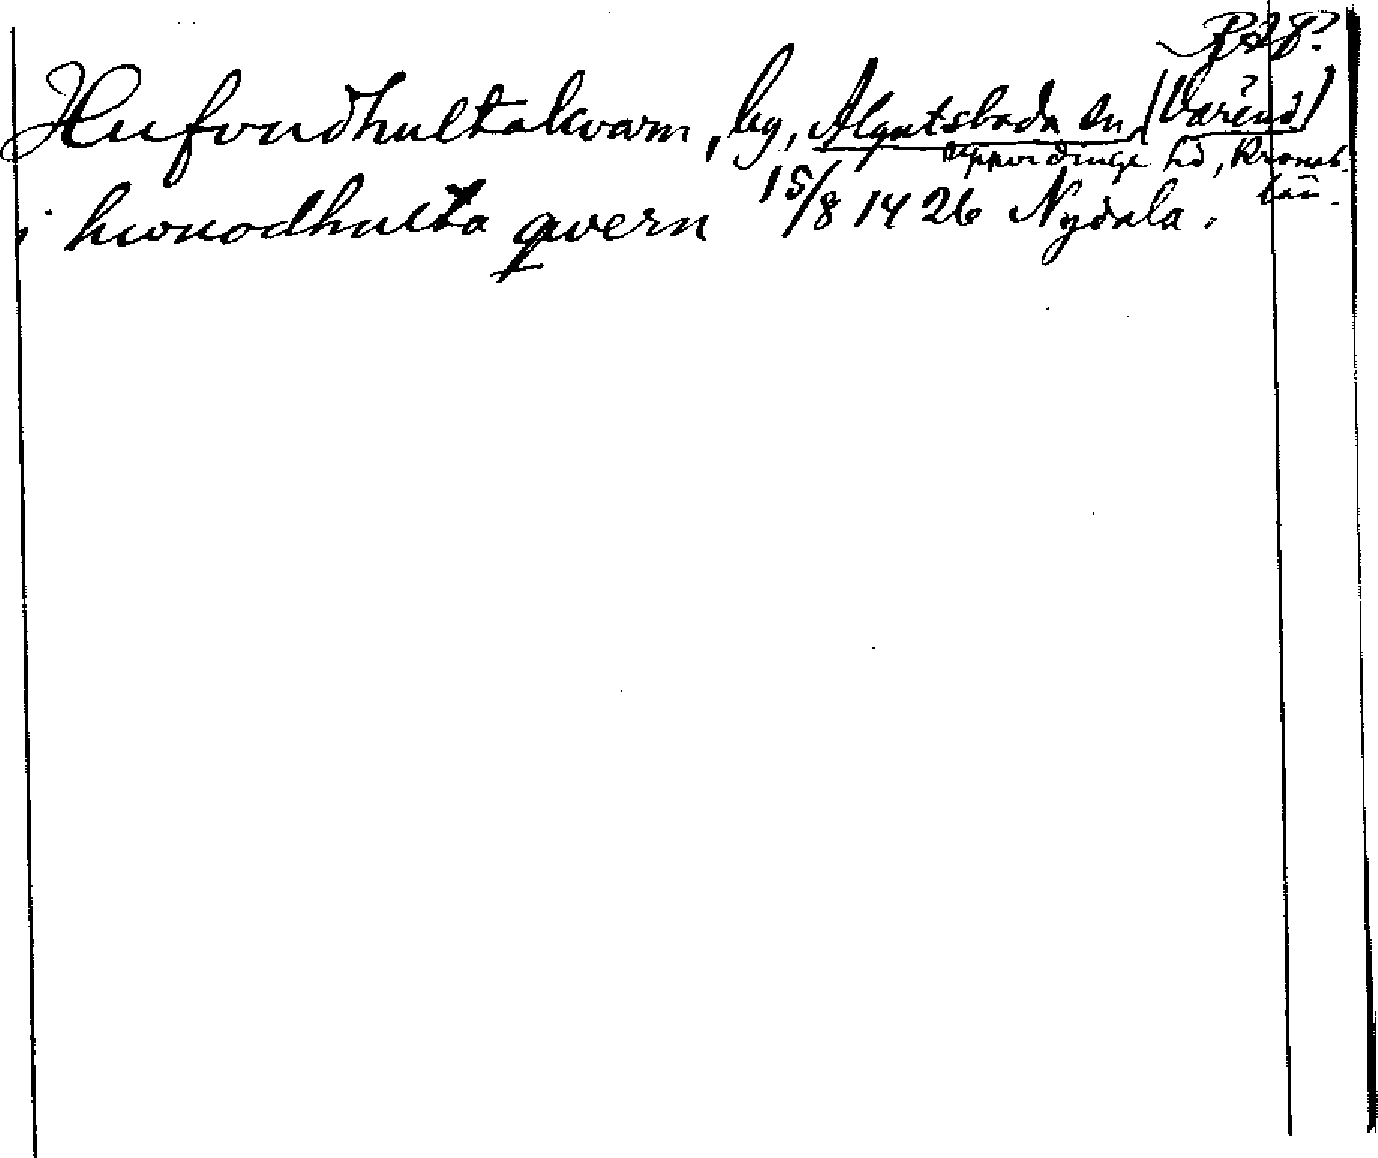 Hufvudhultakvarn, by, Algutsboda sn (Värend)
Uppvidinge hd, Kronob.
län.
i hwuodhulta qwern 15/8 1426 Nydala.